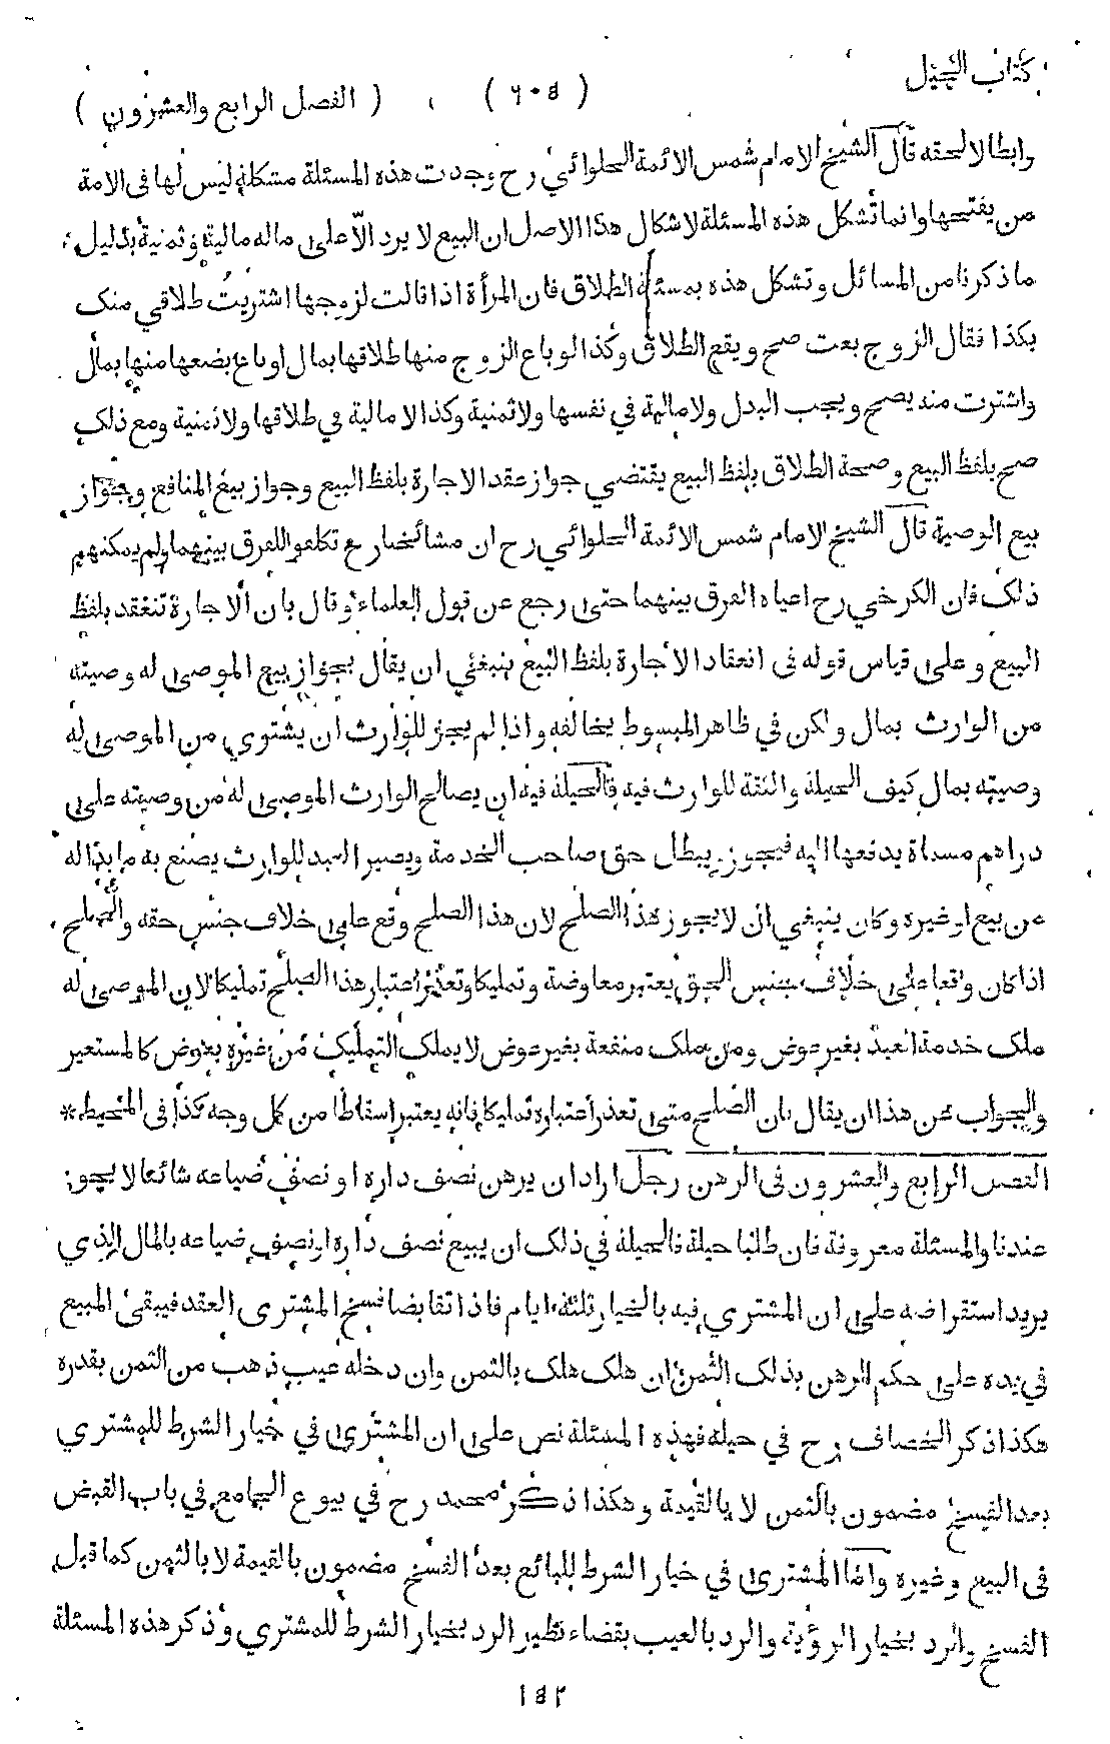 كتاب الحيل
( ٦٠٥ )
( الفصل الرابع والعشرون )
وابطالا لحقه قال الشيخ الامام شمس الائمة الحلوائي رح وجدت هذه المسئلة مشكلة ليس لها فى الامة
من يفتحها وانما تشكل هذه المسئلة لاشكال هذا الاصل ان البيع لا يرد الّا على ماله مالية وثمنية بدليل
ما ذكرنا من المسائل وتشكل هذه بمسئلة الطلاق فان المرأة اذا قالت لزوجها اشتريتُ طلاقي منك
بكذا فقال الزوج بعت صح ويقع الطلاق وكذا لو باع الزوج منها طلاقها بمال او باع بضعها منها بمال
واشترت منه يصح ويجب البدل ولا مالية في نفسها ولا ثمنية وكذا لا مالية في طلاقها ولا ثمنية ومع ذلك
صح بلفظ البيع وصحة الطلاق بلفظ البيع يقتضي جواز عقد الاجارة بلفظ البيع وجواز بيع المنافع وجواز
بيع الوصية قال الشيخ الامام شمس الائمة الحلوائي رح ان مشائخنا رع تكلفوا للفرق بينهما ولم يمكنهم
ذلك فان الكرخي رح اعياه الفرق بينهما حتى رجع عن قول العلماء وقال بان الاجارة تنعقد بلفظ
البيع وعلى قياس قوله فى انعقاد الاجارة بلفظ البيع ينبغي ان يقال بجواز بيع الموصى له وصيته
من الوارث بمال ولكن في ظاهر المبسوط يخالفه واذا لم يجز للوارث ان يشتري من الموصى له
وصيته بمال كيف الحيلة والثقة للوارث فيه فالحيلة فيه ان يصالح الوارث الموصى له من وصيته على
دراهم مسماة يدفعها اليه فيجوز ويبطل حق صاحب الخدمة ويصير العبد للوارث يصنع به ما بدا له
من بيع او غيره وكان ينبغي ان لا يجوز هذا الصلح لان هذا الصلح وقع على خلاف جنس حقه والصلح
اذا كان واقعا على خلاف جنس الحق يعتبر معاوضة وتمليكا وتعذر اعتبار هذا الصلح تمليكا لان الموصى له
ملك خدمة العبد بغير عوض ومن ملك منفعة بغير عوض لا يملك التمليك من غيره بعوض كالمستعير
والجواب عن هذا ان يقال ان الصلح متى تعذر اعتباره تمليكا فانه يعتبر اسقاطا من كل وجه كذا فى المحيط *
الفصل الرابع والعشرون فى الرهن رجل اراد ان يرهن نصف داره او نصف ضياعه شائعا لا يجوز
عندنا والمسئلة معروفة فان طلبا حيلة فالحيلة في ذلك ان يبيع نصف داره او نصف ضياعه بالمال الذي
يريد استقراضه على ان المشتري فيه بالخيار ثلثة ايام فاذا تقابضا فسخ المشترى العقد فيبقى المبيع
في يده على حكم الرهن بذلك الثمن ان هلك هلك بالثمن وان دخله عيب ذهب من الثمن بقدره
هكذا ذكر الخصاف رح في حيله فهذه المسئلة نص على ان المشترى في خيار الشرط للمشتري
بعد الفسخ مضمون بالثمن لا بالقيمة وهكذا ذكر محمد رح في بيوع الجامع في باب القبض
فى البيع وغيره واما المشترى في خيار الشرط للبائع بعد الفسخ مضمون بالقيمة لا بالثمن كما قبل
الفسخ والرد بخيار الرؤية والرد بالعيب بقضاء نظير الرد بخيار الشرط للمشتري وذكر هذه المسئلة
١٥٢